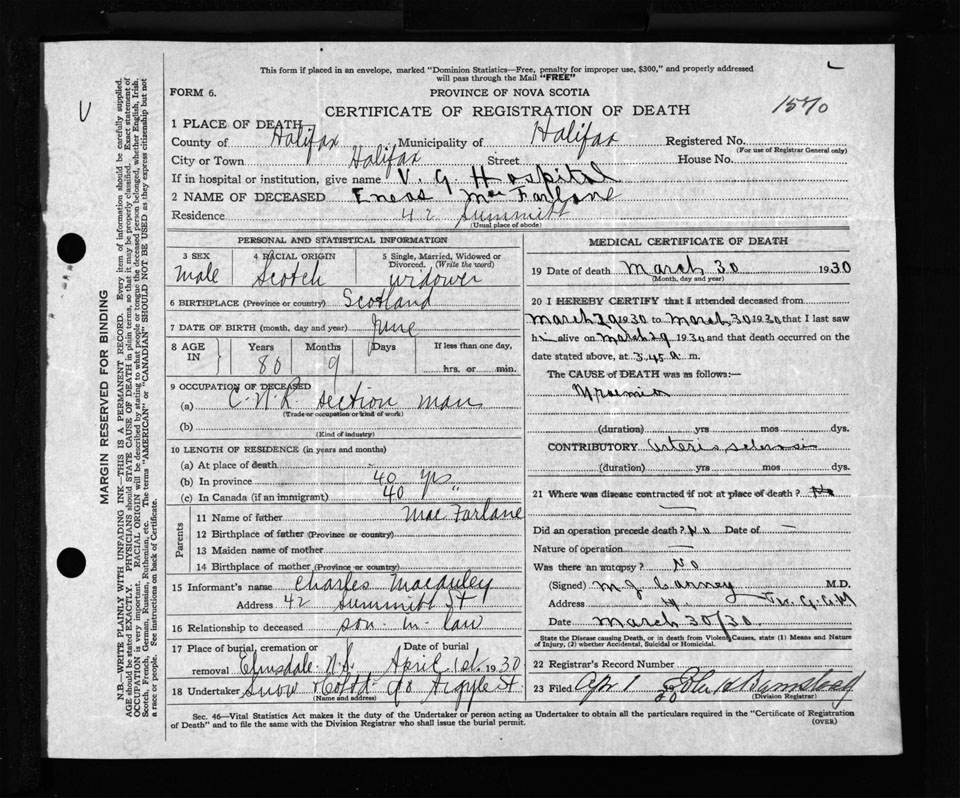 This form if placed in an envelope, marked "Dominion Statistics—Free, penalty for improper use, $300," and properly addressed
will pass through the Mail "FREE"
FORM 6. PROVINCE OF NOVA SCOTIA
CERTIFICATE OF REGISTRATION OF DEATH 1570
1 PLACE OF DEATH
County of Halifax Municipality of Halifax Registered No.
(For use of Registrar General only)
City or Town Halifax Street House No.
If in hospital or institution, give name V. G. Hospital
2 NAME OF DECEASED Eneas MacFarlane
Residence 42 Summitt
(Usual place of abode)
PERSONAL AND STATISTICAL INFORMATION
3 SEX 4 RACIAL ORIGIN 5 Single, Married, Widowed or
Divorced. (Write the word)
Male Scotch Widower
6 BIRTHPLACE (Province or country) Scotland
7 DATE OF BIRTH (month, day and year) June
8 AGE IN Years Months Days If less than one day,
80 9 hrs. or min.
9 OCCUPATION OF DECEASED
(a) C.N.R. section man
(Trade or occupation or kind of work)
(b)
(Kind of industry)
10 LENGTH OF RESIDENCE (in years and months)
(a) At place of death
(b) In province 40 yrs
(c) In Canada (if an immigrant) 40 "
Parents
11 Name of father MacFarlane
12 Birthplace of father (Province or country)
13 Maiden name of mother
14 Birthplace of mother (Province or country)
15 Informant's name Charles Macauley
Address 42 Summitt St
16 Relationship to deceased son-in-law
17 Place of burial, cremation or Date of burial
removal Elmsdale N.S. April 1st 1930
18 Undertaker Snow & Co Ltd 90 Argyle St
(Name and address)
MEDICAL CERTIFICATE OF DEATH
19 Date of death March 30 1930
(Month, day and year)
20 I HEREBY CERTIFY that I attended deceased from
March 20 1930 to March 30 1930 that I last saw
h alive on March 29 1930 and that death occurred on
date stated above, at 3.45 a. m.
The CAUSE of DEATH was as follows:—
Uraemia
(duration) yrs mos dys.
CONTRIBUTORY
(duration) yrs mos dys.
21 Where was disease contracted if not at place of death?
Did an operation precede death? No Date of —
Nature of operation —
Was there an autopsy? No
(Signed) M. J. Carney M.D.
Address
Date March 30/30
State the Disease causing Death, or in death from Violent Causes, state (1) Means and Nature
of Injury, (2) whether Accidental, Suicidal or Homicidal.
22 Registrar's Record Number
23 Filed Apr 1 30 John
(Division Registrar)
Sec. 46—Vital Statistics Act makes it the duty of the Undertaker or person acting as Undertaker to obtain all the particulars required in the "Certificate of Registration
of Death" and to file the same with the Division Registrar who shall issue the burial permit. (OVER)
MARGIN RESERVED FOR BINDING
N.B.—WRITE PLAINLY WITH UNFADING INK—THIS IS A PERMANENT RECORD. Every item of information should be carefully supplied.
AGE should be stated EXACTLY. PHYSICIANS should STATE CAUSE OF DEATH in plain terms, so that it may be properly classified. Exact statement of
OCCUPATION is very important. RACIAL ORIGIN will be described by stating to what people or tongue the deceased person belonged, whether English, Irish,
Scotch, French, German, Russian, Ruthenian, etc. The terms "AMERICAN" or "CANADIAN" SHOULD NOT BE USED as they express citizenship but not
a race or people. See instructions on back of Certificate.